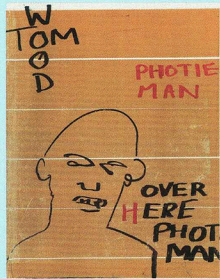 TOM
WOOD
PHOTIE
MAN
OVER
HERE
PHOT
MAN